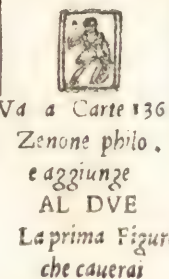 Va a Carte 136
Zenone philo.
e aggiunge
AL DVE
La prima Figur
che cauerai